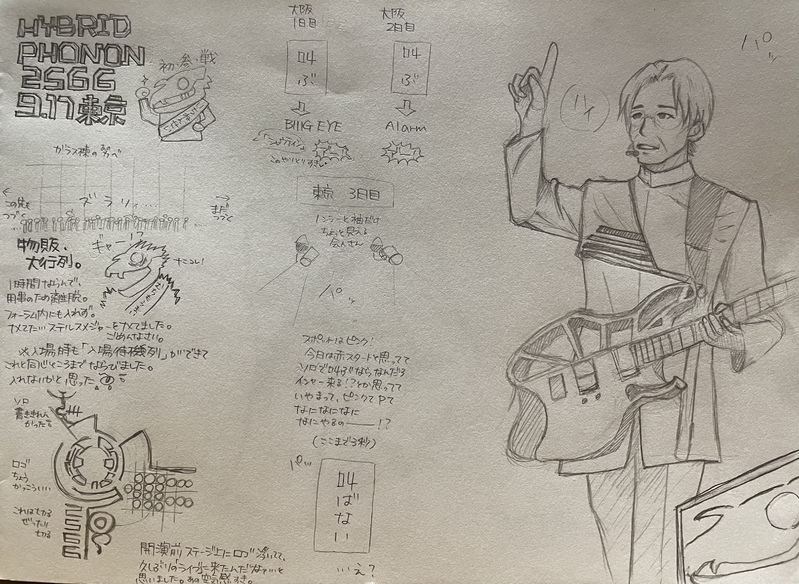 HYBRID
PHONON
2566
9.17 東京
初・参・戦
ガラス棟の方へ
この先も
つづく
ズラリィ…
まだ
つづく
物販、
大行列。
ギャー!?
ナニコレ!
1時間ほどならんで、
用事のため離脱。
フォーラム内にも入れず。
ナメてた…ステルスメジャーをナメてました。
ごめんなさい。
※入場時も「入場待機列」ができて
これと同じところまでならびました。
入れないかと思った
ソロ
書ききれん
かった
ロゴ
ちょう
かっこいい
これは七かる
ぜったい
七かる
開演前ステージ上にロゴ浮いてて、
久しぶりのライブに来たんだなァ…と
思いました。あの空気感すき。
大阪
1日目
04
ぶ
BIIG EYE
大阪
2日目
04
ぶ
Alarm
東京 3日目
ノンラーと袖だけ
ちょっと見える
会人さん
パッ
スポットはピンク!
今日は赤スタートと思ってて
ソロで04ぶならなんだろ
インヤー来る!?とか思ってて
いやまって、ピンクでP
なになになに
なにやるのー!?
(ここまで3秒)
パッ
04
ば
な
い
いえ?
ハイ
パッ